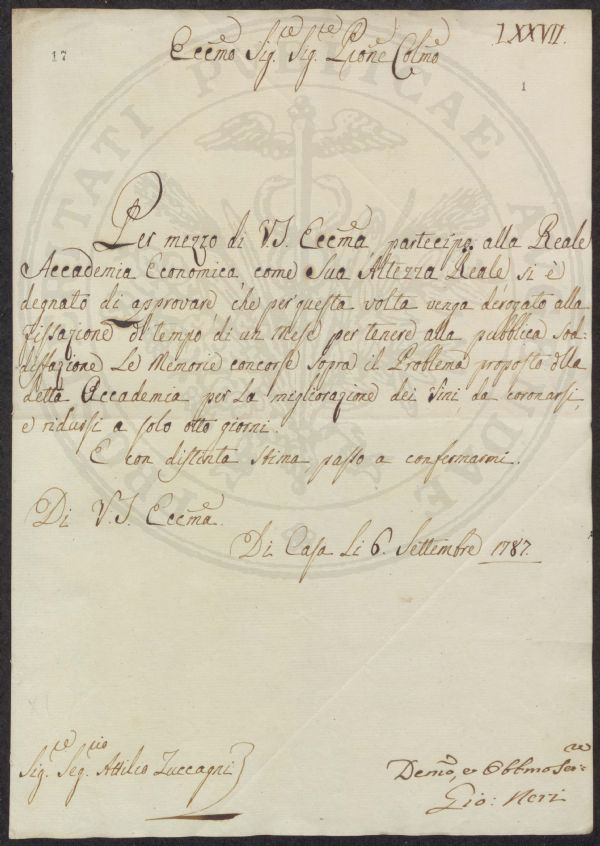 LXXVII.
17
Eccmo Sigre Sigre Pione Colmo
1
Per mezzo di V.S. Eccma partecipo alla Reale
Accademia Economica come Sua Altezza Reale si è
degnato di approvare che per questa volta venga derogato alla
fissazione di tempo di un mese per tenere alla pubblica sod=
disfazione Le Memorie concorse sopra il Problema proposto dlla
detta Accademia per La migliorazione dei Vini, da coronarsi,
e ridursi a solo otto giorni.
E con distinta stima passo a confermarmi.
Di V.S. Eccma
Di Casa Li 6. Settembre 1787.
Sigre Segrio Attilio Zuccagni
Demo, ed Obbmo Serre
Gio: Neri